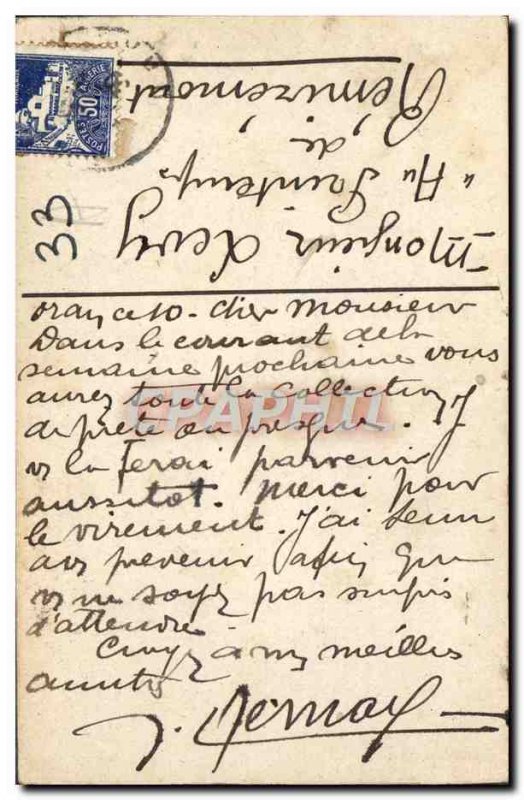 POSTES ALGERIE
50
33
Monsieur Levy
"Au Printemps"
de
Remiremont
Oran ce 10 - Cher Monsieur
Dans le courant de la
semaine prochaine vous
aurez toute la collection
de prete ou presque. J
vs la Ferai parvenir
aussitot. Merci pour
le virement. J'ai tenu
a vs prevenir afin que
vs ne soyez pas surpis
d'attendre
Croyez a mes meilles
amities
CPAPHIL